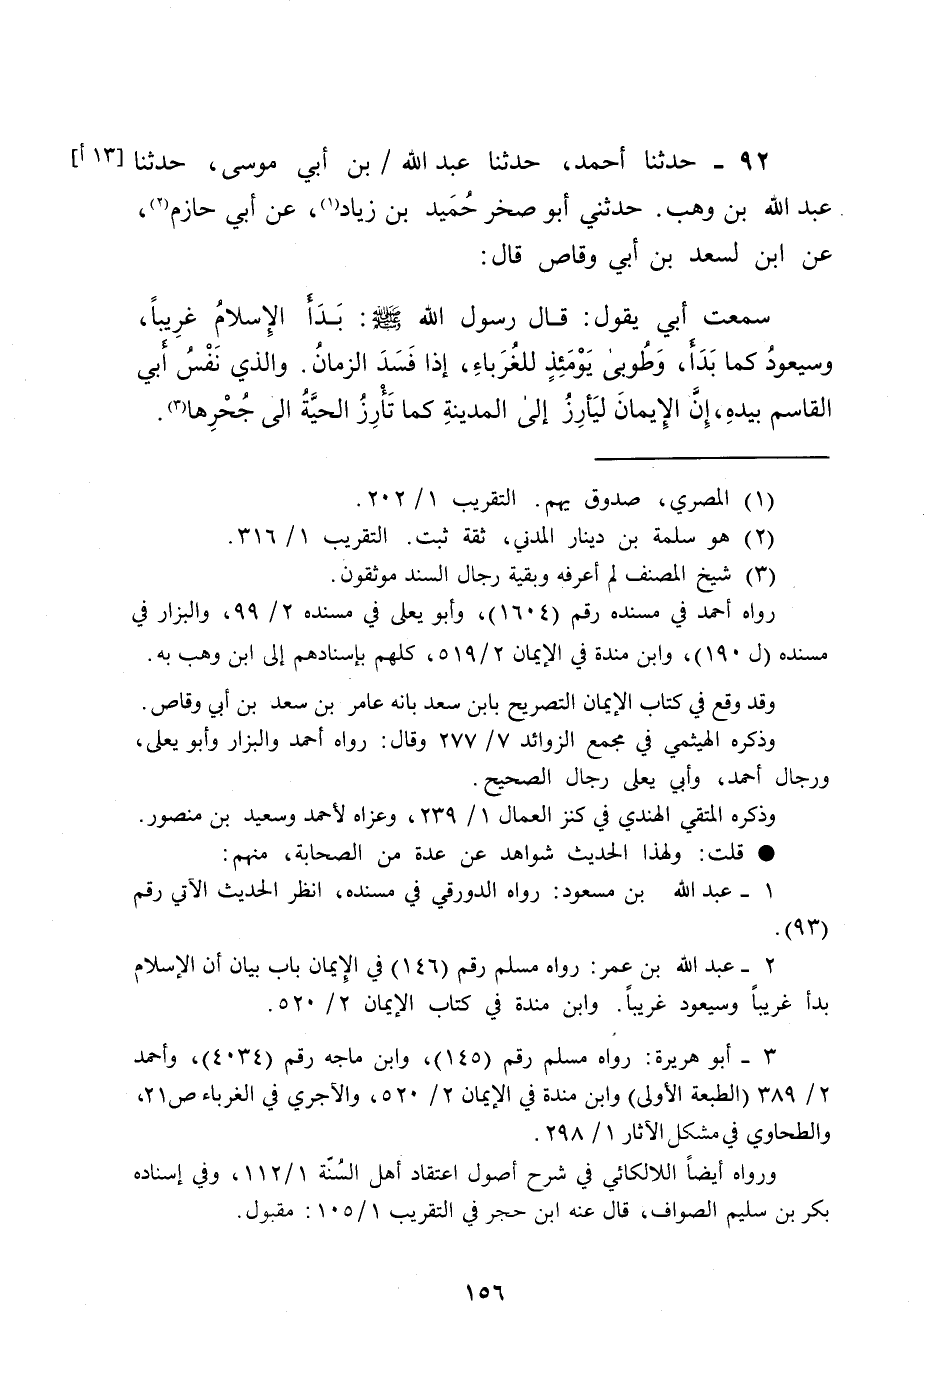 ٩٢ ـ حدثنا أحمد، حدثنا عبد الله / بن أبي موسى، حدثنا [١٣ أ]
عبد الله بن وهب. حدثني أبو صخر حُمَيد بن زياد(١)، عن أبي حازم(٢)،
عن ابن لسعد بن أبي وقاص قال:
سمعت أبي يقول: قـال رسول الله ﷺ: بَـدَأَ الإِسلامُ غرِيباً،
وسيعودُ كما بَدَأَ، وَطُوبىٰ يَوْمَئِذٍ للغُرَباءِ، إذا فَسَدَ الزمانُ. والذي نَفْسُ أَبي
القاسم بيدهِ، إِنَّ الإِيمانَ ليَأرِزُ إلىٰ المدينةِ كما تَأْرِزُ الحيَّةُ الى جُحْرِها(٣).
(١) المصري، صدوق يهم. التقريب ١/ ٢٠٢.
(٢) هو سلمة بن دينار المدني، ثقة ثبت. التقريب ١/ ٣١٦.
(٣) شيخ المصنف لم أعرفه وبقية رجال السند موثقون.
رواه أحمد في مسنده رقم (١٦٠٤)، وأبو يعلى في مسنده ٢/ ٩٩، والبزار في
مسنده (ل ١٩٠)، وابن مندة في الإيمان ٥١٩/٢، كلهم بإسنادهم إلى ابن وهب به.
وقد وقع في كتاب الإيمان التصريح بابن سعد بانه عامر بن سعد بن أبي وقاص.
وذكره الهيثمي في مجمع الزوائد ٧/ ٢٧٧ وقال: رواه أحمد والبزار وأبو يعلى،
ورجال أحمد، وأبي يعلى رجال الصحيح.
وذكره المتقي الهندي في كنز العمال ١/ ٢٣٩، وعزاه لأحمد وسعيد بن منصور.
● قلت: ولهذا الحديث شواهد عن عدة من الصحابة، منهم:
١ ـ عبد الله بن مسعود: رواه الدورقي في مسنده، انظر الحديث الآتي رقم
(٩٣).
٢ ـ عبد الله بن عمر: رواه مسلم رقم (١٤٦) في الإِيمان باب بيان أن الإسلام
بدأ غريباً وسيعود غريباً. وابن مندة في كتاب الإيمان ٢/ ٥٢٠.
٣ ـ أبو هريرة: رواه مسلم رقم (١٤٥)، وابن ماجه رقم (٤٠٣٤)، وأحمد
٢/ ٣٨٩ (الطبعة الأولى) وابن مندة في الإيمان ٢/ ٥٢٠، والآجري في الغرباء ص٢١،
والطحاوي في مشكل الآثار ١/ ٢٩٨.
ورواه أيضاً اللالكائي في شرح أصول اعتقاد أهل السُنّة ١١٢/١، وفي إسناده
بكر بن سليم الصواف، قال عنه ابن حجر في التقريب ١٠٥/١: مقبول.
١٥٦